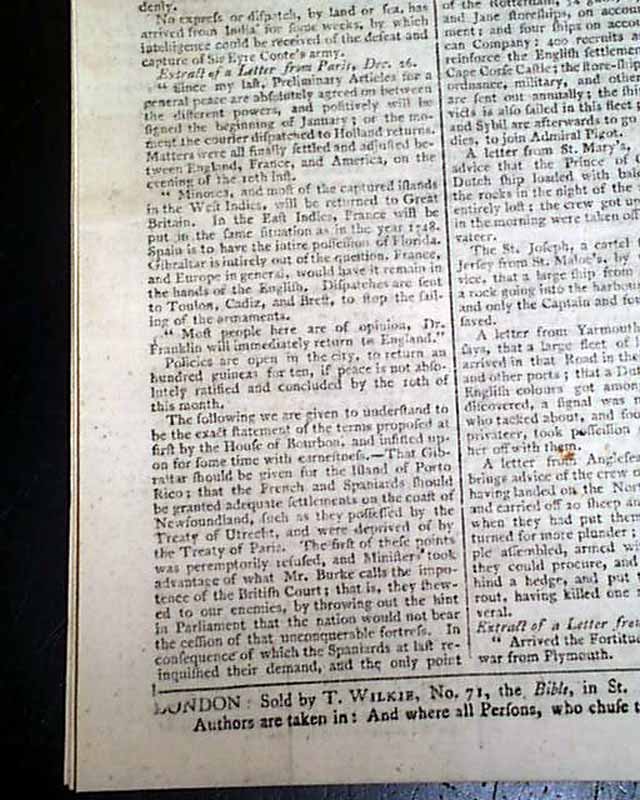 denly.
No express or dispatch, by land or sea, has
arrived from India for some weeks, by which
intelligence could be received of the defeat and
capture of Sir Eyre Coote's army.
Extract of a Letter from Paris, Dec. 26.
“ Since my last, Preliminary Articles for a
general peace are absolutely agreed on between
the different powers, and positively will be
signed the beginning of January; or the mo-
ment the courier dispatched to Holland returns.
Matters were all finally settled and adjusted be-
tween England, France, and America, on the
evening of the 10th inst.
“ Minorca, and most of the captured islands
in the West Indies, will be returned to Great
Britain. In the East Indies, France will be
put in the same situation as in the year 1748.
Spain is to have the intire possession of Florida.
Gibraltar is intirely out of the question. France,
and Europe in general, would have it remain in
the hands of the English. Dispatches are sent
to Toulon, Cadiz, and Brest, to stop the sail-
ing of the armaments.
“ Most people here are of opinion, Dr.
Franklin will immediately return to England.”
Policies are open in the city, to return an
hundred guineas for ten, if peace is not abso-
lutely ratified and concluded by the 10th of
this month.
The following we are given to understand to
be the exact statement of the terms proposed at
first by the House of Bourbon, and insisted up-
on for some time with earnestness.—That Gib-
raltar should be given for the Island of Porto
Rico; that the French and Spaniards should
be granted adequate settlements on the coast of
Newfoundland, such as they possessed by the
Treaty of Utrecht, and were deprived of by
the Treaty of Paris. The first of these points
was peremptorily refused, and Ministers took
advantage of what Mr. Burke calls the impo-
tence of the British Court; that is, they shew-
ed to our enemies, by throwing out the hint
in Parliament that the nation would not bear
the cession of that unconquerable fortress. In
consequence of which the Spaniards at last re-
inquished their demand, and the only point
of the Rotterdam,
and Jane storeships, on accou
ment; and four ships on accou
can Company; 400 recruits a
reinforce the English settlement
Cape Corse Castle; the store-ship
ordnance, military, and other
are sent out annually; the ship
victs is also sailed in this fleet
and Sybil are afterwards to go
dies, to join Admiral Pigot.
A letter from St. Mary's,
advice that the Prince of
Dutch ship loaded with bale
the rocks in the night of the
entirely lost; the crew got up
in the morning were taken off
vateer.
The St. Joseph, a cartel
Jersey from St. Maloe's, by
vice, that a large ship from
a rock going into the harbour
and only the Captain and few
saved.
A letter from Yarmouth
says, that a large fleet of
arrived in that Road in the
and other ports; that a Dut
English colours got among
discovered, a signal was m
who tacked about, and fou
privateer, took possession
her off with them.
A letter from Anglesea
brings advice of the crew o
having landed on the Nort
and carried off 20 sheep an
when they had put them
turned for more plunder;
ple assembled, armed wi
they could procure, and
hind a hedge, and put
rout, having killed one a
veral.
Extract of a Letter from
“ Arrived the Fortitude
war from Plymouth.
LONDON: Sold by T. WILKIE, No. 71, the Bible, in St.
Authors are taken in: And where all Persons, who chuse t